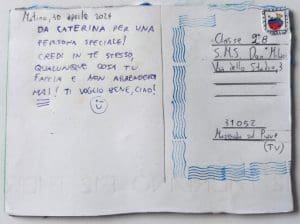 Matino, 30 aprile 2024
DA CATERINA PER UNA
PERSONA SPECIALE!
CREDI IN TE STESSO,
QUALUNQUE COSA TU
FACCIA E NON ARRENDERTI
MAI! TI VOGLIO BENE, CIAO!
Classe 2ªB
S.M.S. Don Milani
Via dello Stadio, 3
31052
Maserada sul Piave
(TV)